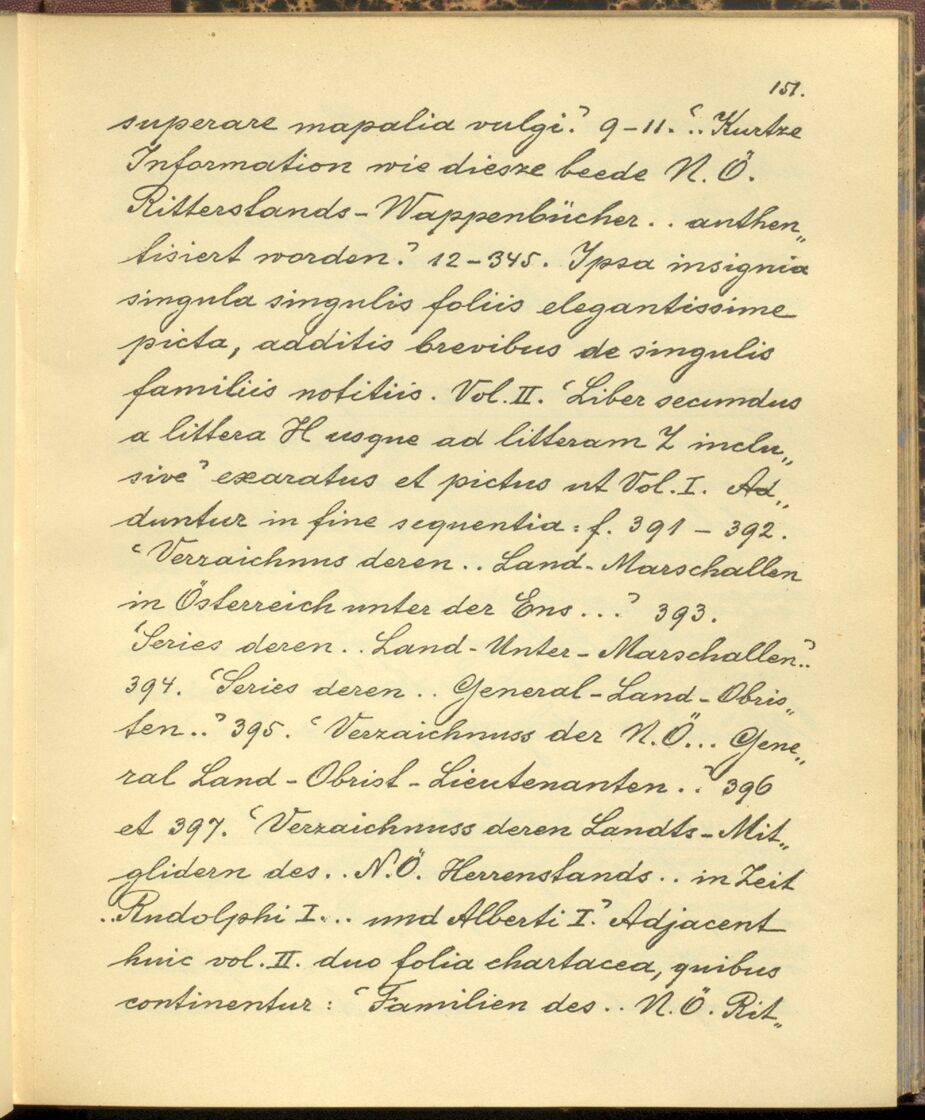 151.
superare mapalia vulgi.” 9-11. “.. Kurtze
Information wie diesze beede N. Ö.
Ritterstands-Wappenbücher .. authen„
tisiert worden.” 12-345. Ipsa insignia
singula singulis foliis elegantissime
picta, additis brevibus de singulis
familiis notitiis. Vol. II. “Liber secundus
a littera H usque ad litteram Z inclu„
sive” exaratus et pictus ut Vol. I. Ad„
duntur in fine sequentia: f. 391 – 392.
“Verzaichnus deren .. Land-Marschallen
in Österreich unter der Ens ...” 393.
“Series deren .. Land-Unter-Marschallen”..
394. “Series deren .. General-Land-Obris„
ten ..” 395. “Verzaichnuss der N. Ö... Gene„
ral Land-Obrist-Lieutenanten ..” 396
et 397. “Verzaichnuss deren Landts-Mit„
glidern des .. N. Ö. Herrenstands .. in Zeit
.. Rudolphi I... und Alberti I.” Adjacent
huic vol. II. duo folia chartacea, quibus
continentur: “Familien des .. N. Ö. Rit„